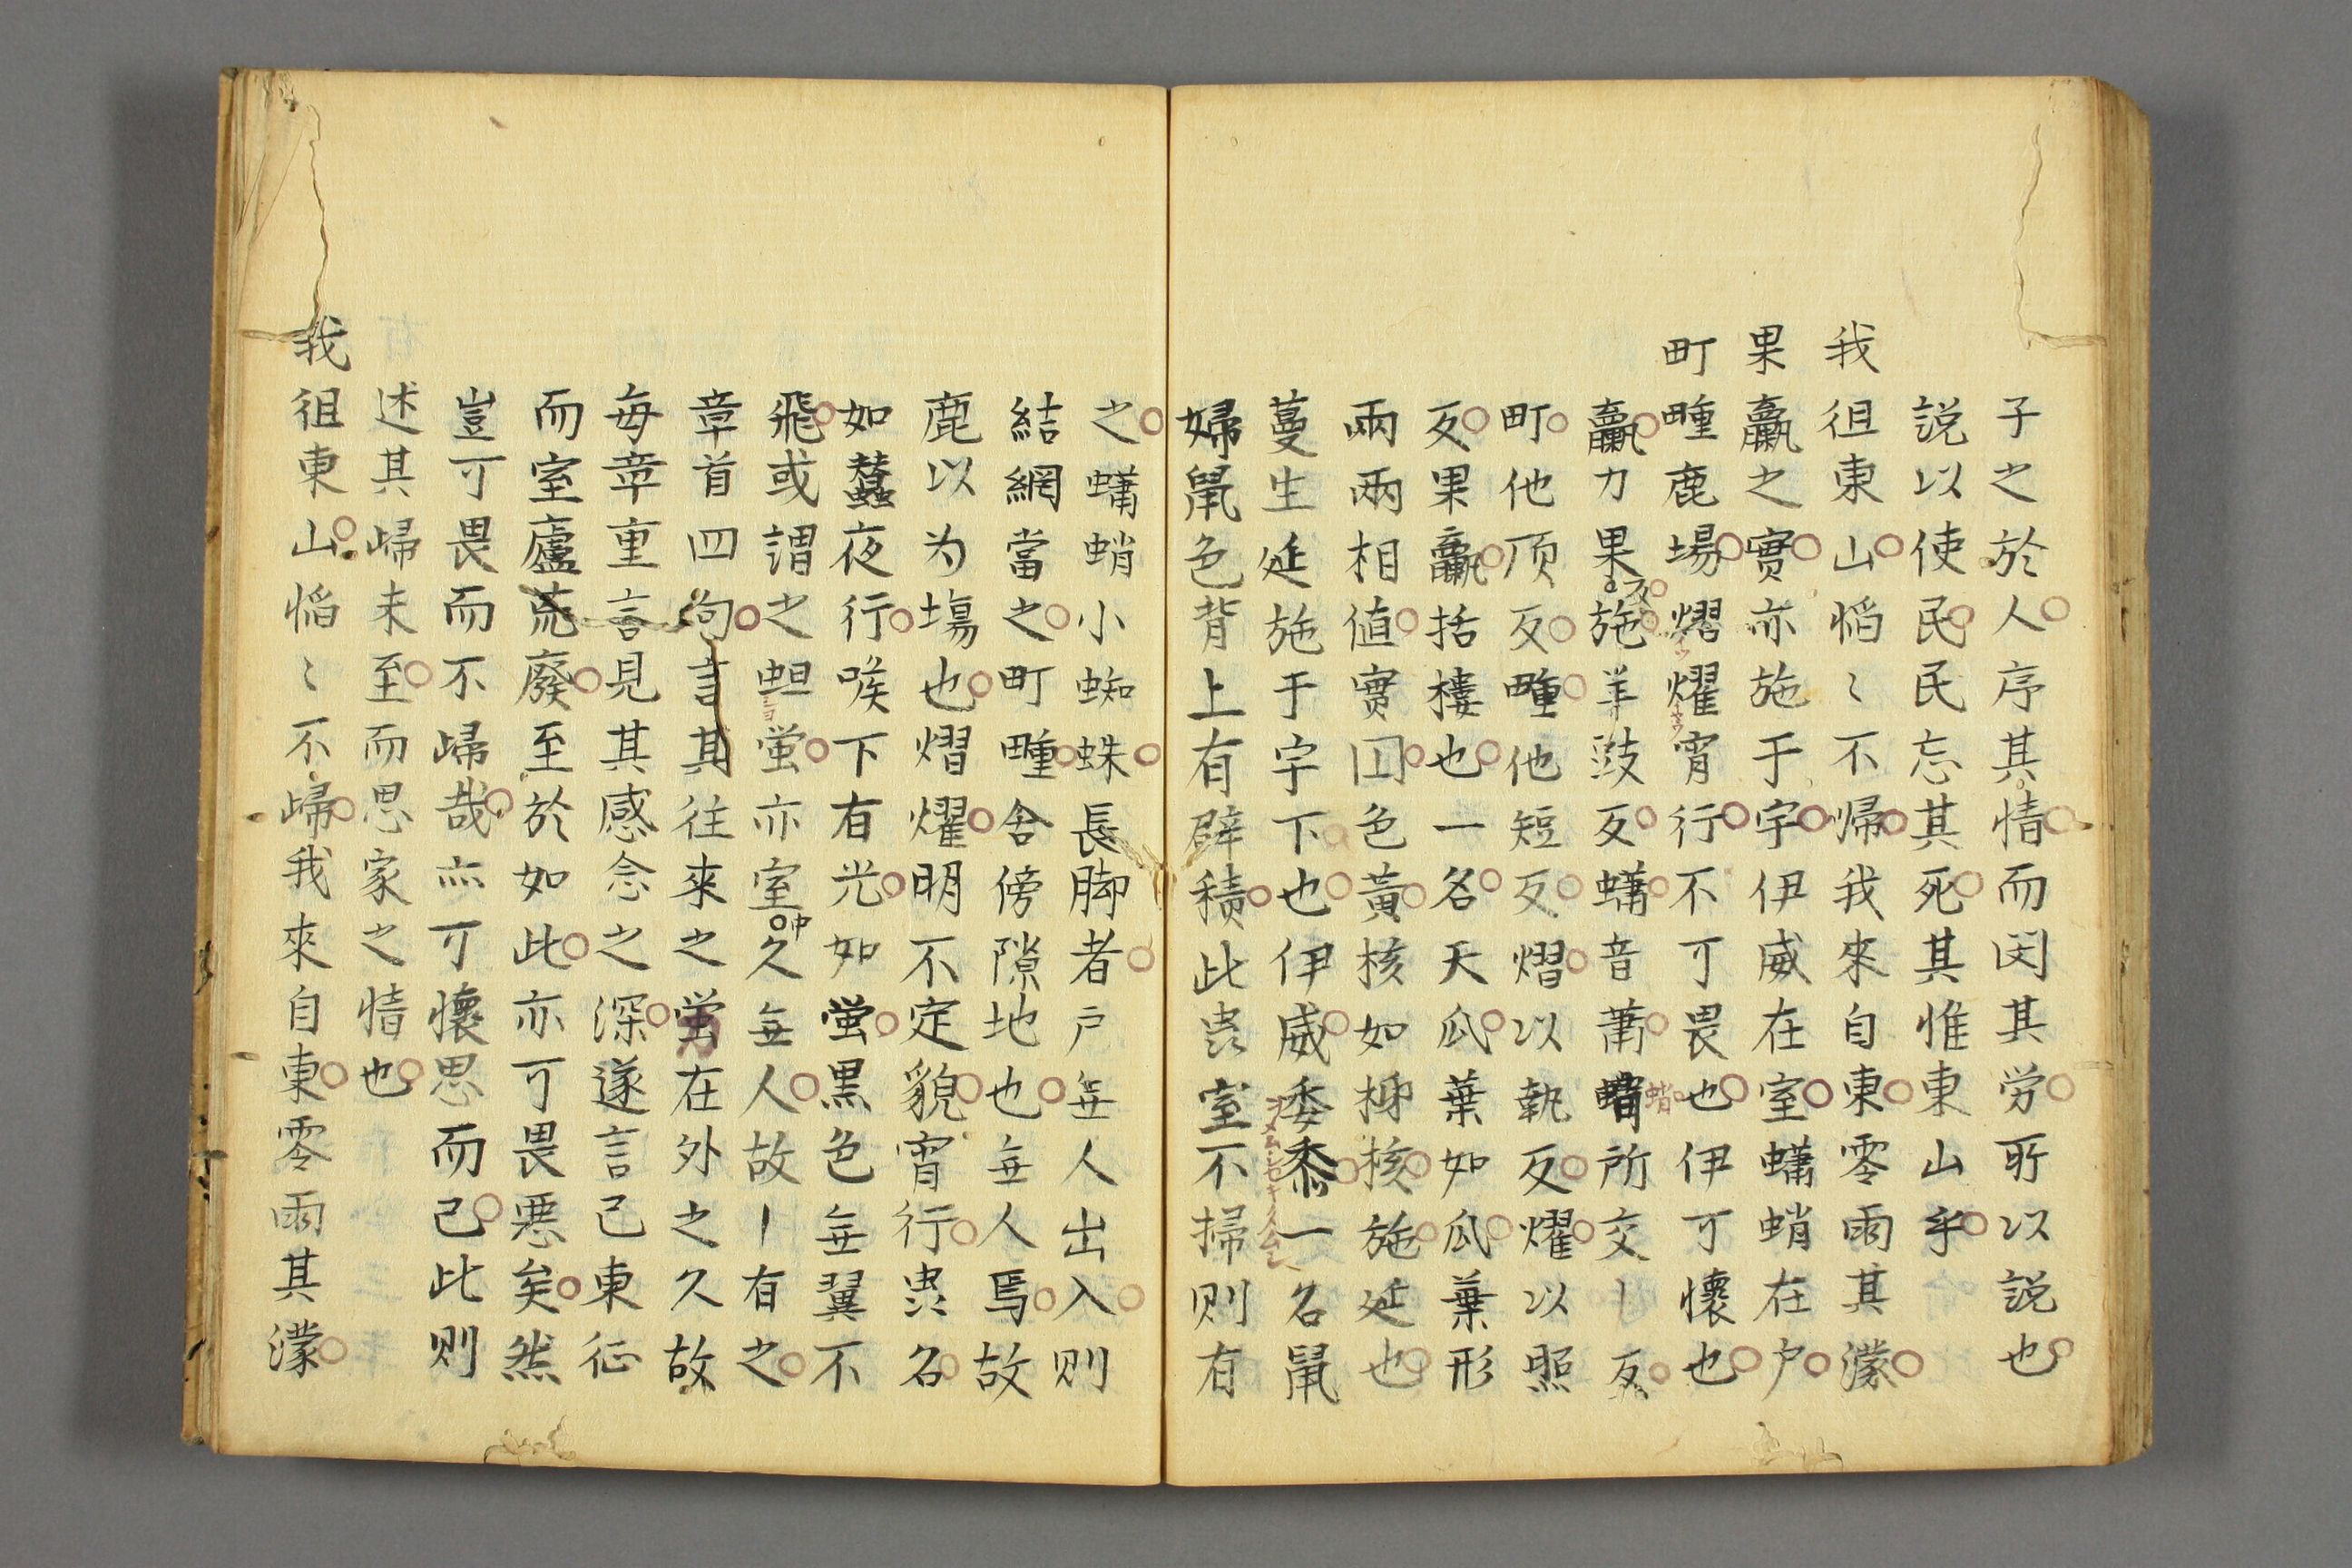 子之於人序其情而閔其労所以説也
説以使民民忘其死其惟東山乎
我徂東山慆〻不帰我來自東零雨其濛
果臝之實亦施于宇伊威在室蠨蛸在戸
町畽鹿場熠燿宵行不可畏也伊可懐也
臝力果反施羊豉反蠨音蕭蛸所交〡反
町他頂反畽他短反熠以執反燿以照
反果臝括樓也一名天瓜葉如瓜葉形
兩兩相値實囯色黃核如桺核施延也
蔓生延施于宇下也伊威委黍一名鼠
婦鼠色背上有辟積此蛊室不掃则有
之蠨蛸小蜘蛛長脚者戸無人出入则
結網當之町畽舍傍隙地也無人焉故
鹿以为塲也熠燿明不定貌宵行蛊名
如蠶夜行喉下有光如蛍黒色無翼不
飛或謂之蛆蛍亦室中久無人故〡有之
章首四句言其往來之蛍在外之久故
每章重言見其感念之深遂言己東征
而室廬荒廢至於如此亦可畏悪矣然
豈可畏而不歸哉亦可懷思而己此则
述其歸未至而思家之情也
我徂東山慆〻不歸我來自東零雨其濛